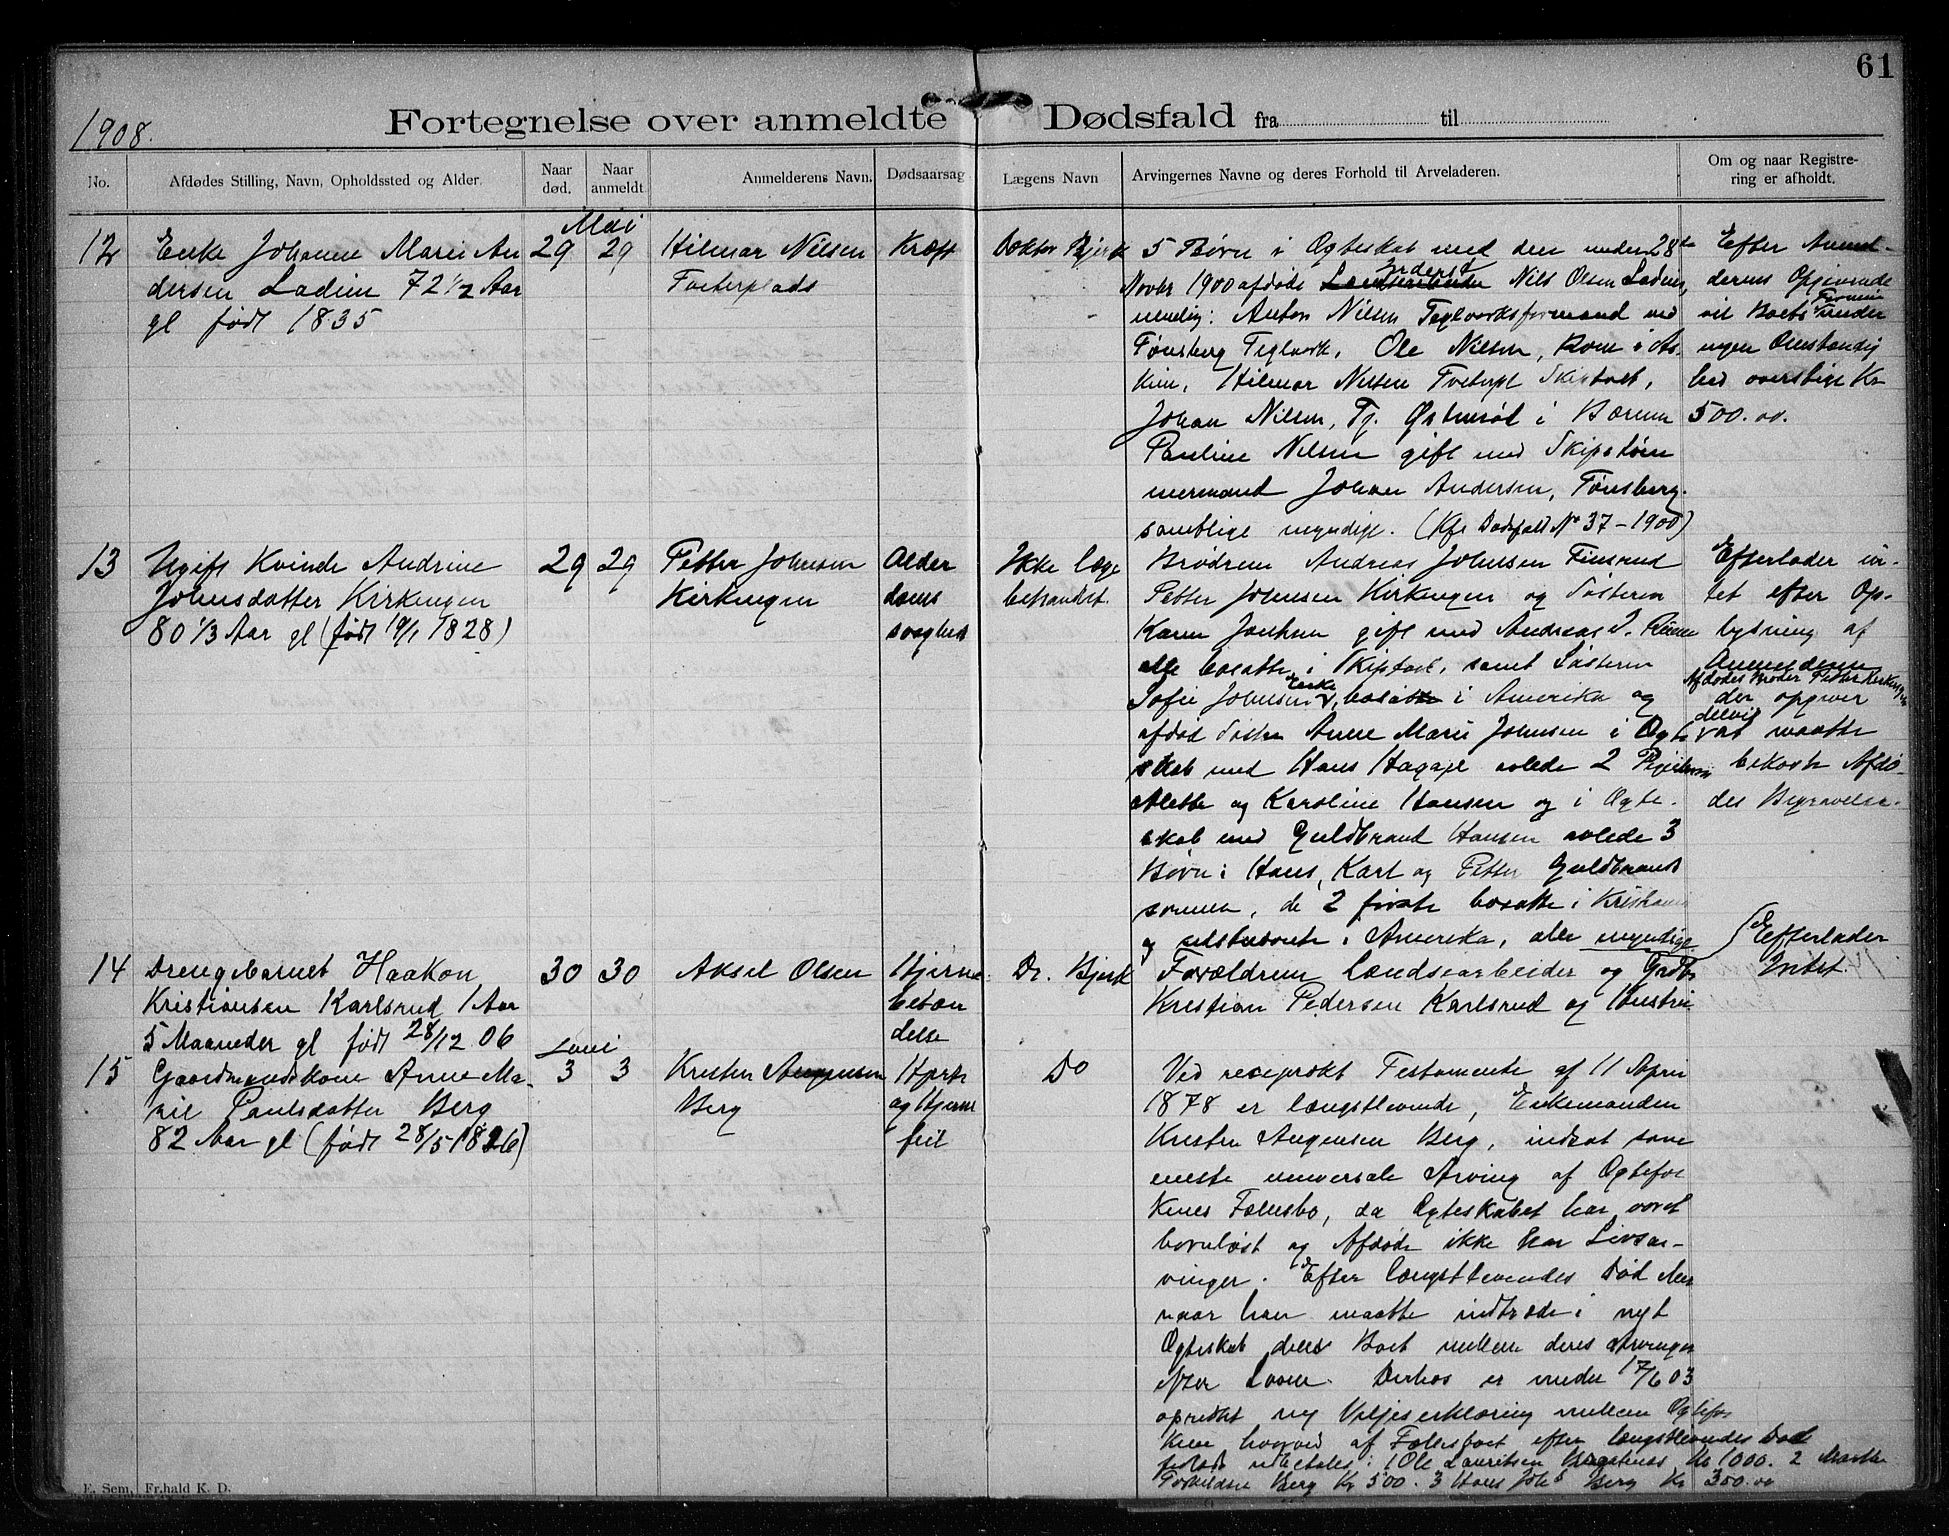 61
1908.
Fortegnelse over anmeldte Dødsfald fra til
No.
Afdødes Stilling, Navn, Opholdssted og Alder.
Naar død.
Naar anmeldt
Anmelderens Navn.
Dødsaarsag
Lægens Navn
Arvingernes Navne og deres Forhold til Arveladeren.
Om og naar Registrering er afholdt.
12
Enke Johanne Marie An
dersen Ladim 72 1/2 Aar
gl født 1835
Mai
29
29
Hilmar Nilsen
Kræft
Doktor Bjerk
5 Børn i Ægteskab med den under 28de
Novbr 1900 afdøde Inderst Nils Olsen Ladim,
nemlig: Anton Nilsen Teglværksformand ved
Tønsberg Teglværk, Ole Nilsen, Rom i As-
kim, Hilmar Nilsen Skiptvet,
Johan Nilsen, Tj. i Bærum
Pauline Nilsen gift med Skipstøm
mermand Johan Andersen, Tønsberg.
samtlige myndige. (Kfr Dødsfald No 37-1900)
Efter Anmel-
derens Opgivende
vil Boets under
ingen Omstændig
hed overstige Kr
500.00.
13
Ugift Kvinde Andrine
Johnsdatter Kirkengen
80 1/3 Aar gl (født 19/1 1828)
29
29
Petter Johnsen
Kirkengen
Alder
doms
svaghed
Ikke læge
behandlet.
Brødrene Andreas Johnsen Finsrud
Petter Johnsen Kirkengen og Søsteren
Karen gift med Andreas J.
alle bosatte i Skiptvet, samt Søsteren
Sofie Johnsen Enke bosat i Amerika og
afdød Søster Anne Marie Johnsen i Ægte
skab med Hans Hagage avlede 2
og Karoline Hansen og i Ægte-
skab med Guldbrand Hansen avlede 3
Børn: Hans, Karl og Petter Guldbrand
sønner, de 2 første bosatte i Kristiania
og sidstnævnte i Amerika, alle myndige
Efterlader in-
tet efter Op-
lysning af
Anmelderen
Afdødes Broder Petter Kirkengen
der opgiver
delvis
at maatte
bekoste Afdø-
des Begravelse.
14
Drengebarnet Haakon
Kristiansen Karlsrud 1 Aar
5 Maaneder gl født 28/12 06
30
30
Aksel Olsen
Hjerne
betæn
delse
Dr. Bjerk
Forældrene Landsearbeider og Gaardbr
Kristian Pedersen Karlsrud og Hustru
Efterlader
Intet.
15
Gaardmandskone Anne Ma-
rie Paulsdatter Berg
82 Aar gl (født 28/5 1826)
Juni
3
3
Kristen Augensen
Berg
Hjerte
og Hjerne
feil
Do
Ved reciprokt Testamente af 11 April
1878 er længstlevende, Enkemanden
Kristen Augensen Berg, indsat som
eneste universale Arving af Ægtefol
kenes Fællesbo, da Ægteskabet har været
barnløst og Afdøde ikke har Livsar-
vinger. Efter længstlevendes Død
naar han maatte indtræde i nyt
Ægteskab deles Boet mellem deres Arvinger
efter Loven. Derhos er under 17/6 03
oprettet ny Viljeserklæring mellem Ægtefol
kene hvorved af Fællesboet efter længstlevendes Død
udbetales: 1 Ole Lauritsen Kr 1000. 2 Marthe
Berg Kr 500. 3 Hans Berg Kr 300.00
E. Sem, Fr.hald K. D.